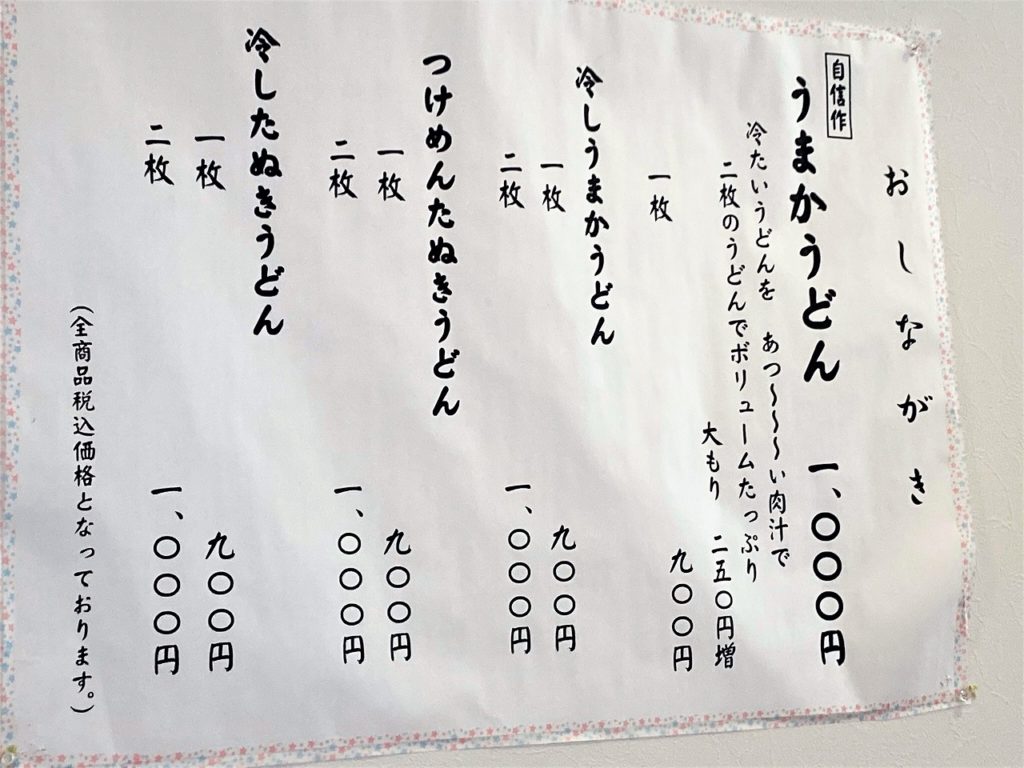 おしながき
自信作
うまかうどん 一、〇〇〇円
冷たいうどんを あつ～～～い肉汁で
二枚のうどんでボリュームたっぷり
大もり 二五〇円増
一枚 九〇〇円
冷しうまかうどん
一枚 九〇〇円
二枚 一、〇〇〇円
つけめんたぬきうどん
一枚 九〇〇円
二枚 一、〇〇〇円
冷したぬきうどん
一枚 九〇〇円
二枚 一、〇〇〇円
(全商品税込価格となっております。)